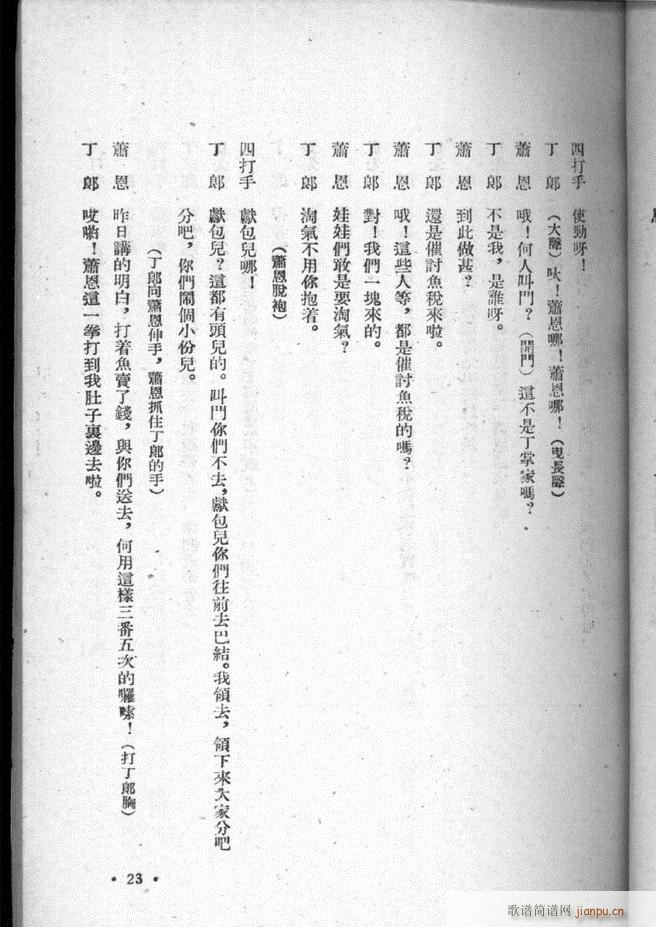 四打手 使勁呀！
丁 郎 （大聲）吠！蕭恩哪！蕭恩哪！（曳長聲）
蕭 恩 哦！何人叫門？（開門）這不是丁掌家嗎？
丁 郎 不是我，是誰呀。
蕭 恩 到此做甚？
丁 郎 還是催討魚稅來啦。
蕭 恩 哦！這些人等，都是催討魚稅的嗎？
丁 郎 對！我們一塊來的。
蕭 恩 娃娃們敢是要淘氣？
丁 郎 淘氣不用你抱着。
（蕭恩脫袍）
四打手 獻包兒哪！
丁 郎 獻包兒？這都有頭兒的。叫門你們不去，獻包兒你們往前去巴結。我領去，領下來大家分吧
分吧，你們鬧個小份兒。
（丁郎向蕭恩伸手，蕭恩抓住丁郎的手）
蕭 恩 昨日講的明白，打着魚賣了錢，與你們送去，何用這樣三番五次的囉嗦！（打丁郎胸）
丁 郎 哎喲！蕭恩這一拳打到我肚子裏邊去啦。
• 23 •
歌谱简谱网 jianpu.cn